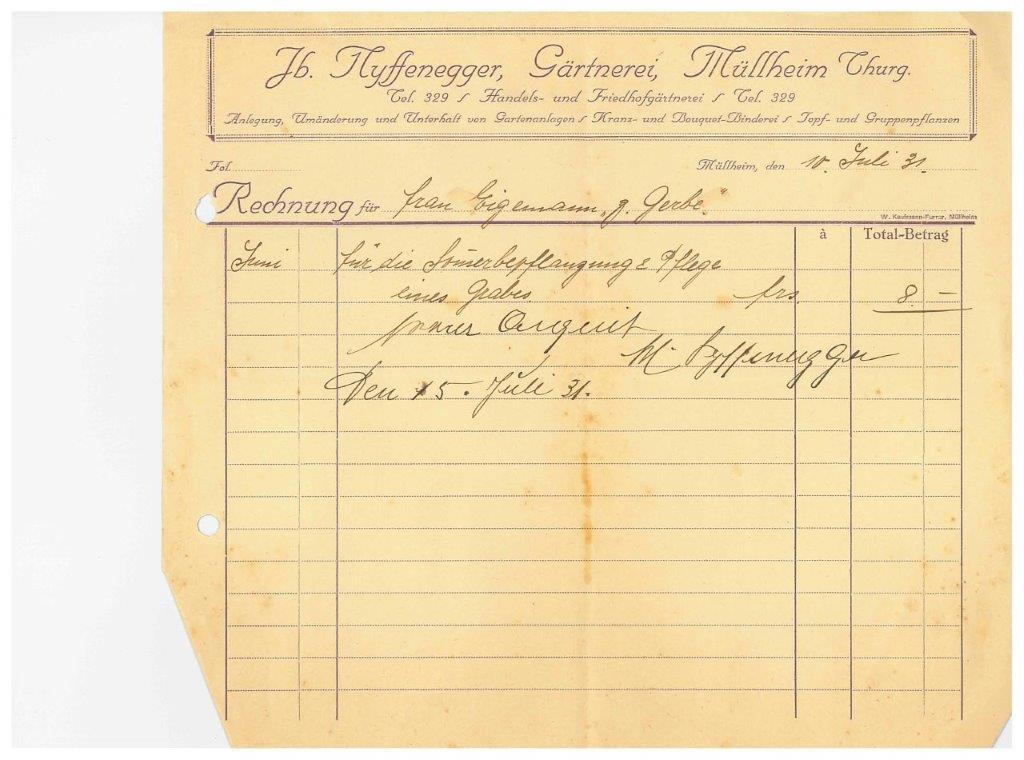 Jb. Nyffenegger, Gärtnerei, Müllheim Thurg.
Tel. 329 / Handels- und Friedhofgärtnerei / Tel. 329
Anlegung, Umänderung und Unterhalt von Gartenanlagen / Kranz- und Bouquet-Binderei / Topf- und Gruppenpflanzen
Fol.
Müllheim, den 10. Juli 31.
Rechnung für Frau Eigemann, "z. Gerbe."
W. Kaufmann-Furrer, Müllheim
à Total-Betrag
Juni für die Som̄erbepflanzung & Pflege
eines Grabes frs. 8.—
Nyffenegger
Den 15. Juli 31.